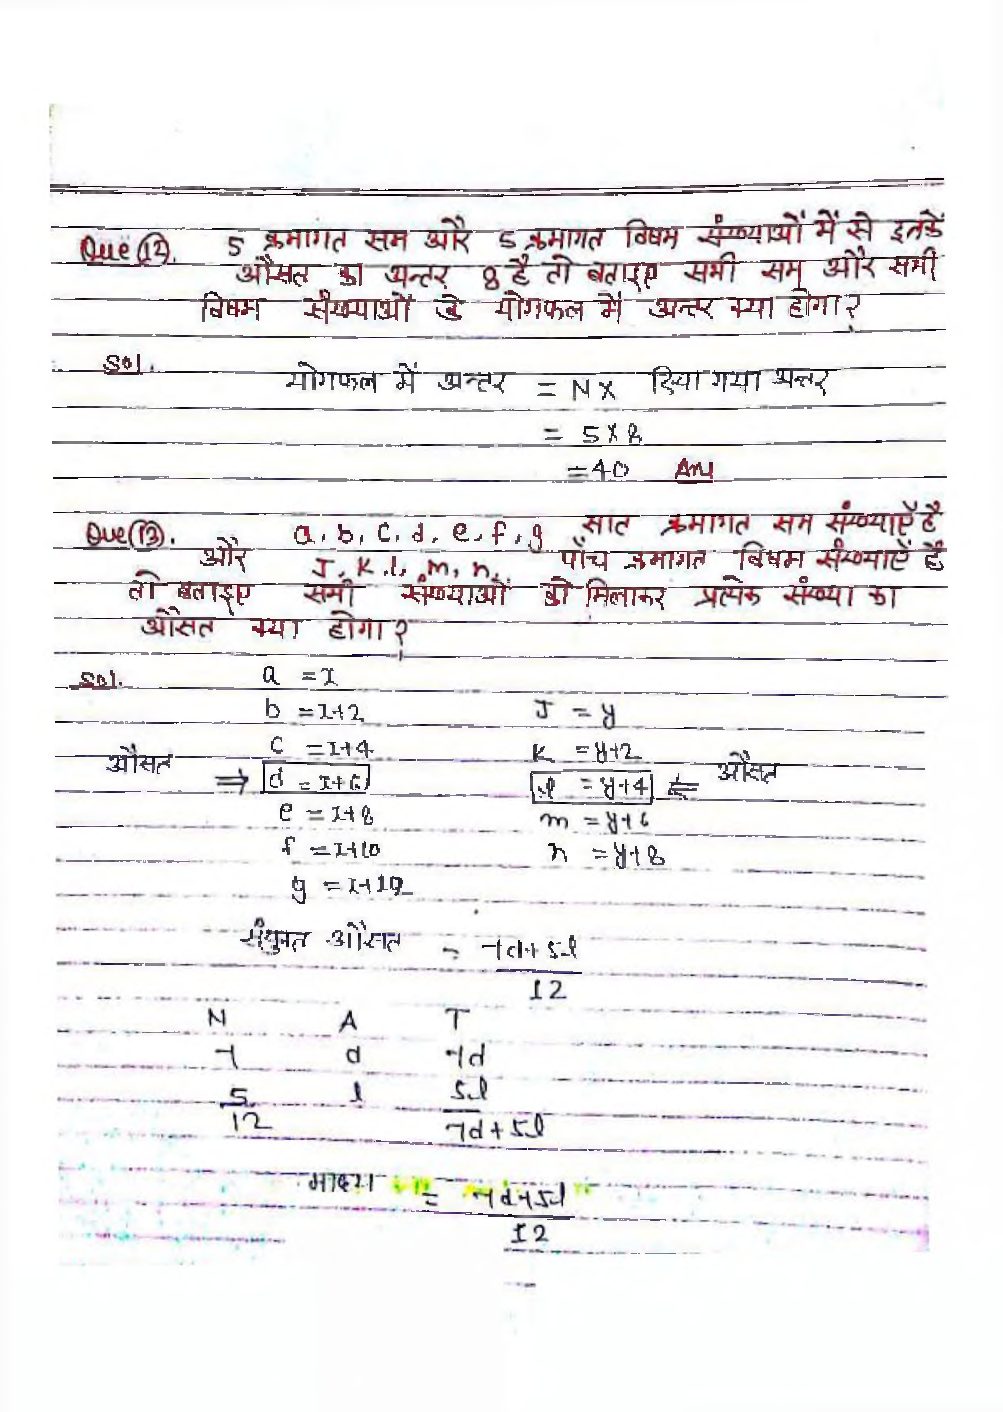 Que (12). 5 क्रमागत सम और 5 क्रमागत विषम संख्याओं में से इनके
औसत का अन्तर 8 है तो बताइए सभी सम और सभी
विषम संख्याओं के योगफल में अन्तर क्या होगा?
Sol. योगफल में अन्तर = N X दिया गया अन्तर
= 5 X 8
= 40 Ans
Que (13). a, b, c, d, e, f, g सात क्रमागत सम संख्याएँ है
और J, K, l, m, n, पाँच क्रमागत विषम संख्याएँ है
तो बताइए सभी संख्याओं को मिलाकर प्रत्येक संख्या का
औसत क्या होगा?
Sol. a = x
b = x+2 J = y
c = x+4 K = y+2
औसत ⇒ d = x+6 l = y+4 ⇐ औसत
e = x+8 m = y+6
f = x+10 n = y+8
g = x+12
संयुक्त औसत = 7d+5l
12
N A T
7 d 7d
5 l 5l
12 7d+5l
माध्य = 7d+5l
12